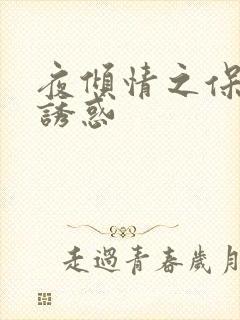 夜傾情之保
誘惑
走過青春歲月